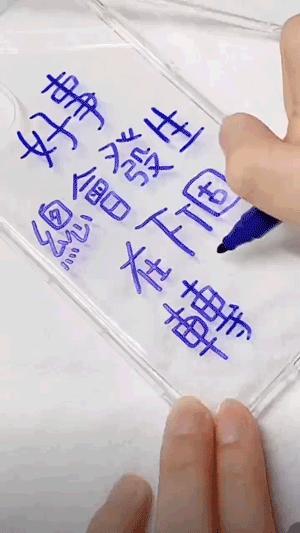 好事
總會發生
在下個
轉